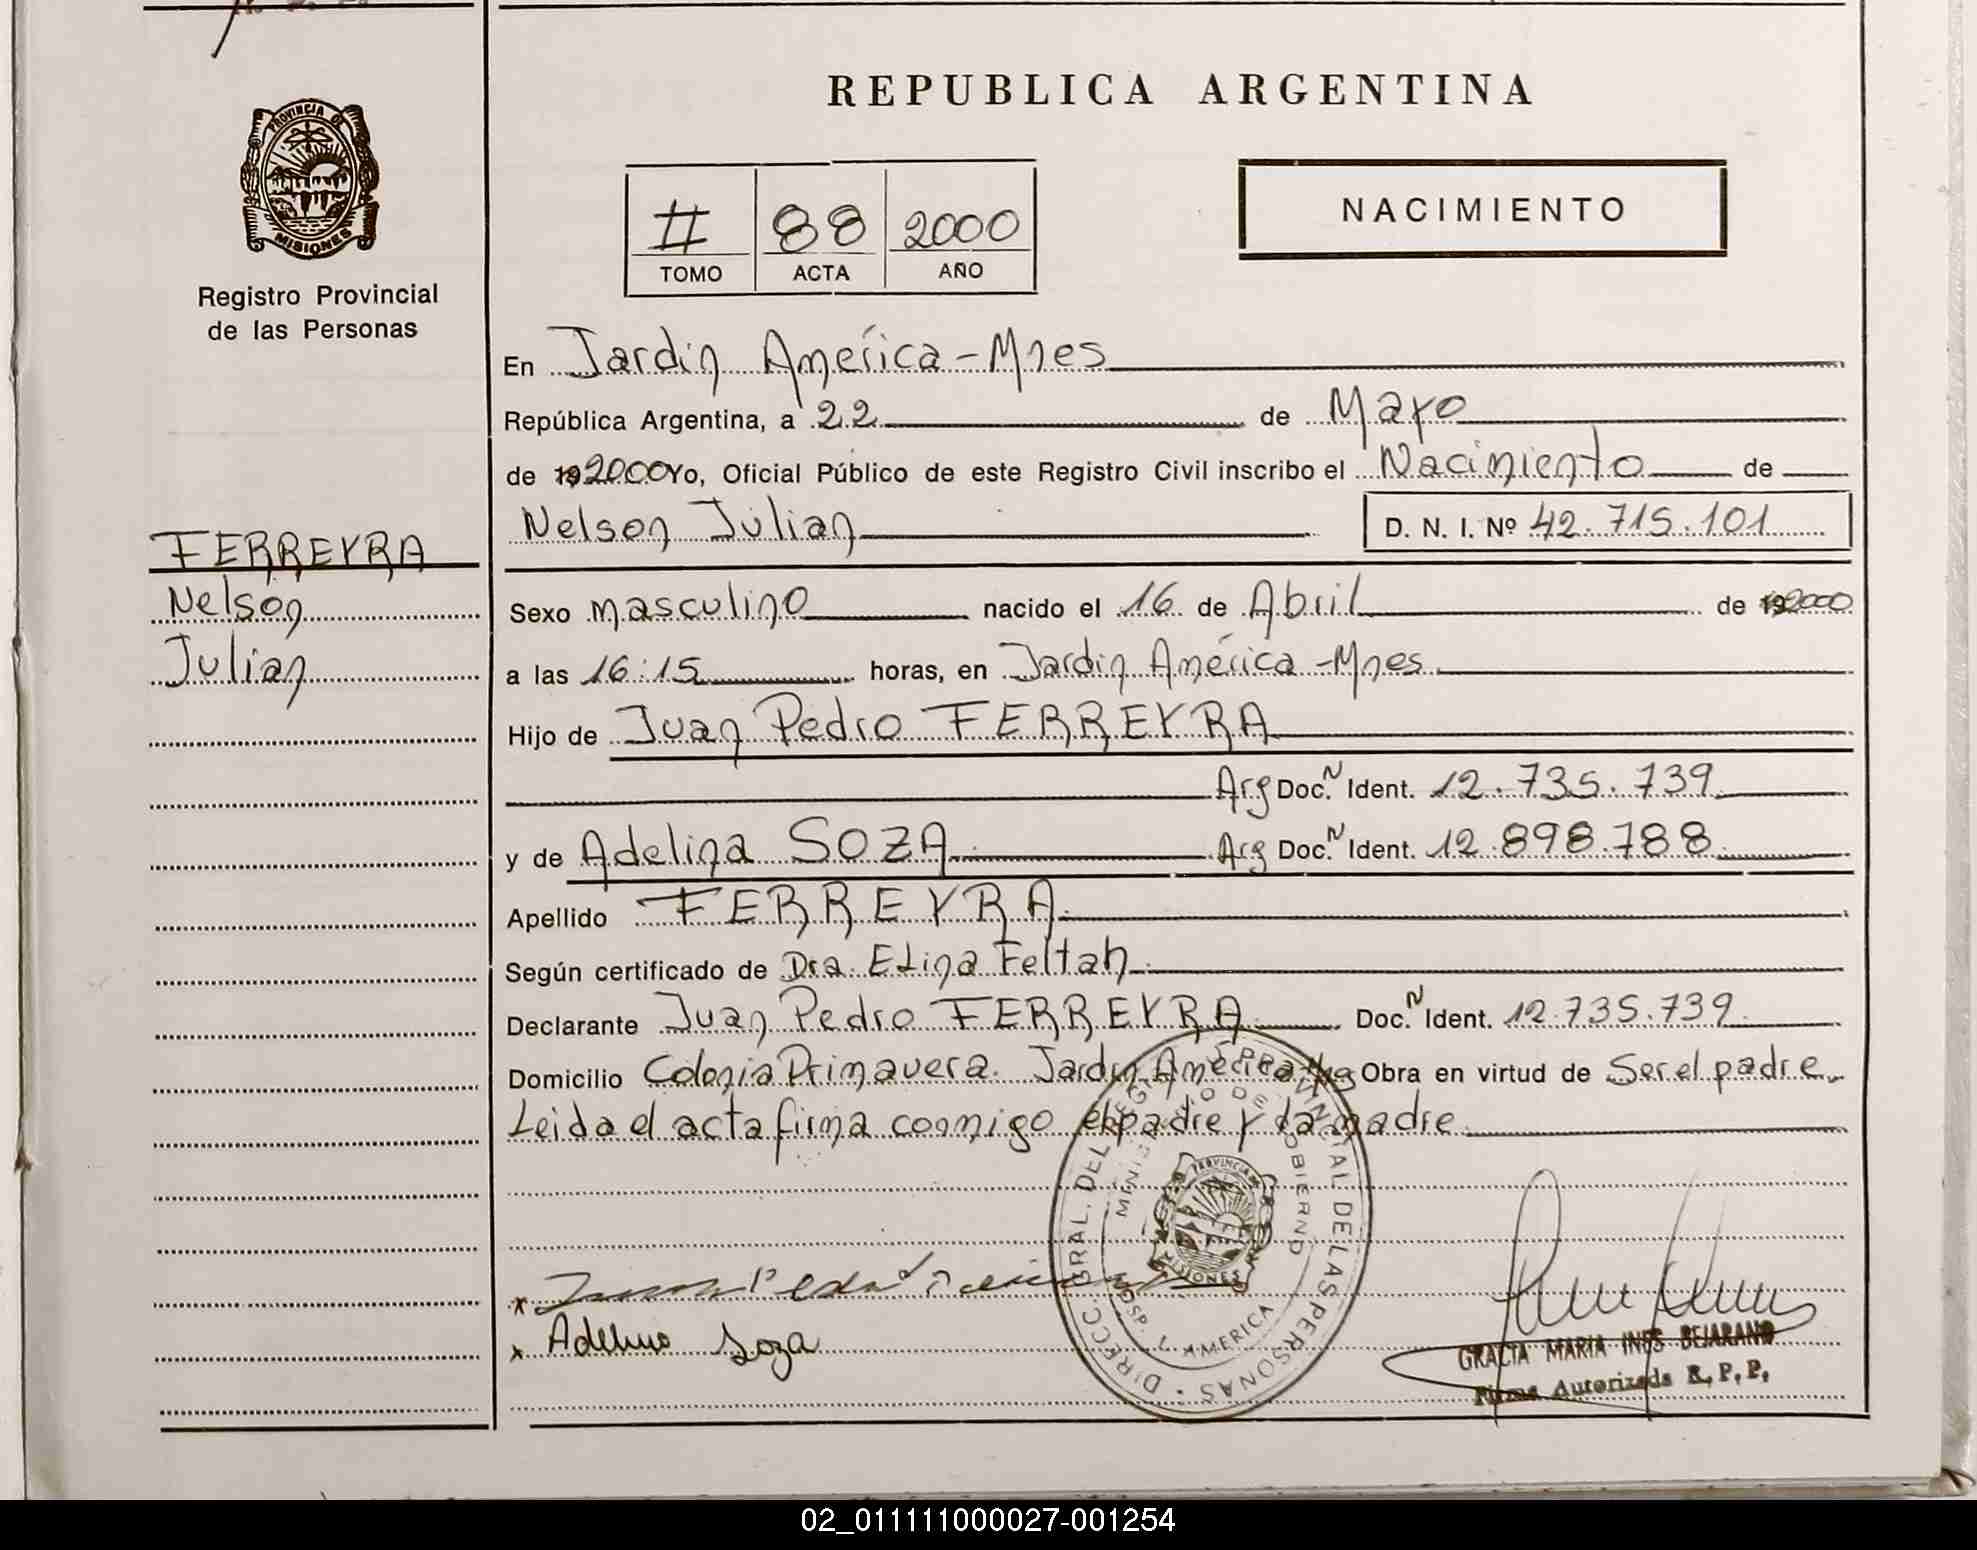 REPUBLICA ARGENTINA
PROVINCIA DE
MISIONES
Registro Provincial
de las Personas
# 88 2000
TOMO ACTA AÑO
NACIMIENTO
En Jardin América - Mnes
República Argentina, a 22 de Mayo
de 192000 Yo, Oficial Público de este Registro Civil inscribo el Nacimiento de
Nelson Julian D. N. I. Nº 42.715.101
FERREYRA
Nelson
Julian
Sexo masculino nacido el 16 de Abril de 192000
a las 16:15 horas, en Jardin América - Mnes
Hijo de Juan Pedro FERREYRA
Arg Doc. N Ident. 12.735.739
y de Adelina SOZA Arg Doc. N Ident. 12.898.788
Apellido FERREYRA
Según certificado de Dra. Elina Feltan
Declarante Juan Pedro FERREYRA Doc. N Ident. 12.735.739
Domicilio Colonia Primavera. Jardin América Obra en virtud de Ser el padre
Leida el acta firma conmigo el padre y la madre
DIRECC. GRAL. DEL REG. PROVINCIAL DE LAS PERSONAS
MINISTERIO DE GOBIERNO
PROVINCIA DE
MISIONES
AMERICA
x Juan Pedro
x Adelina Soza
GRACIA MARIA INES BEJARANO
Firma Autorizada R. P. P.
02_011111000027-001254